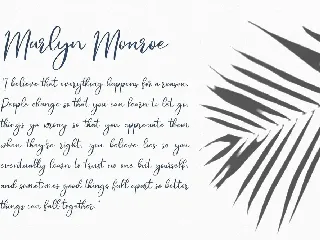 Marlyn Monroe
"I believe that everything happens for a reason.
People change so that you can learn to let go,
things go wrong so that you appreciate them
when they're right, you believe lies so you
eventually learn to trust no one but yourself,
and sometimes good things fall apart so better
things can fall together."